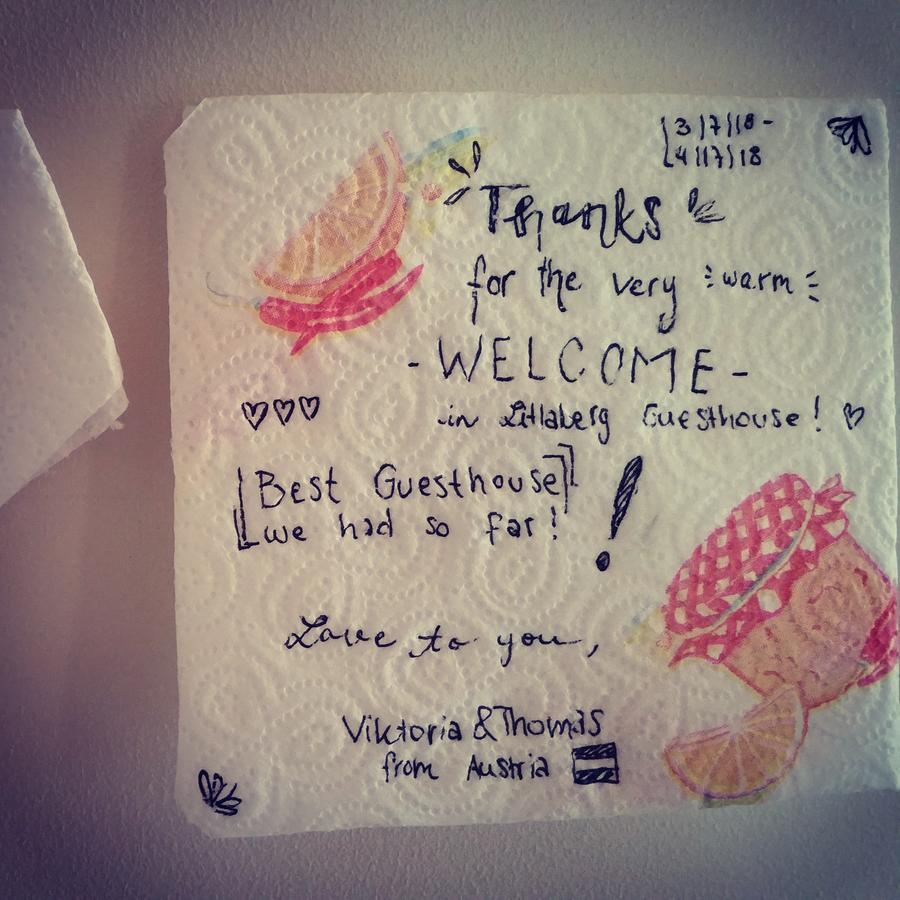 3/7/18-
4/17/18
Thanks
for the very warm
- WELCOME -
in Litlaberg Guesthouse!
Best Guesthouse
we had so far!
!
Love to you,
Viktoria & Thomas
from Austria